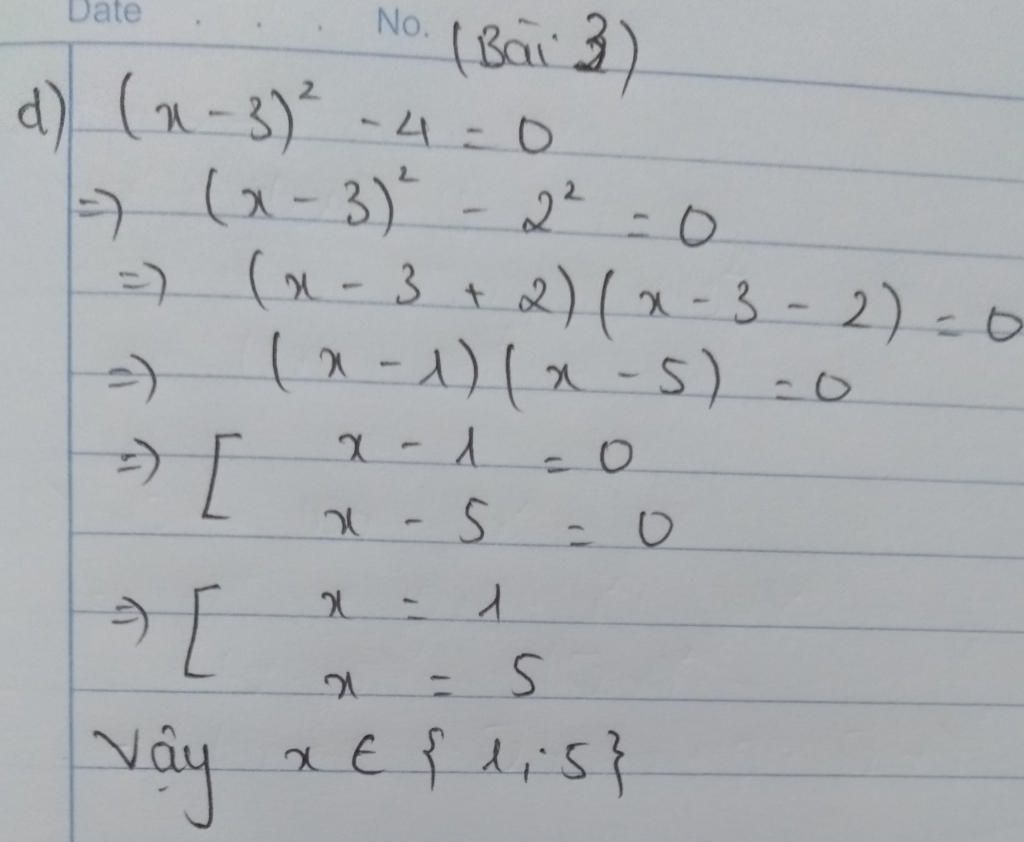 Date . . . No. (Bài 3)
d) (x - 3)² - 4 = 0
=> (x - 3)² - 2² = 0
=> (x - 3 + 2)(x - 3 - 2) = 0
=> (x - 1)(x - 5) = 0
=> [ x - 1 = 0
x - 5 = 0
=> [ x = 1
x = 5
Vậy x ∈ { 1; 5}